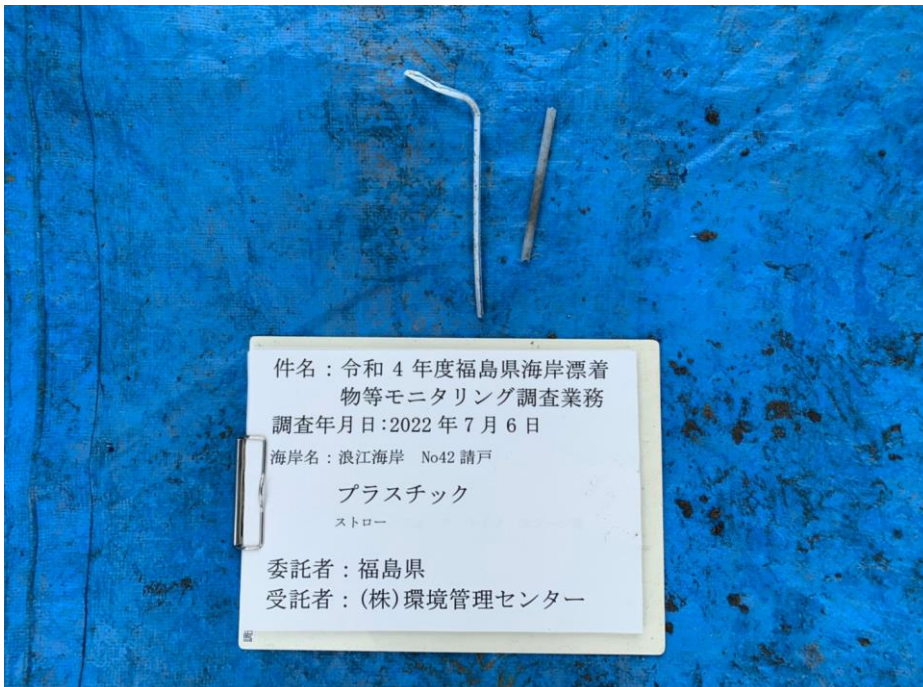 件名：令和 4 年度福島県海岸漂着
物等モニタリング調査業務
調査年月日：2022 年 7 月 6 日
海岸名：浪江海岸 No42 請戸
プラスチック
ストロー
委託者：福島県
受託者：(株)環境管理センター